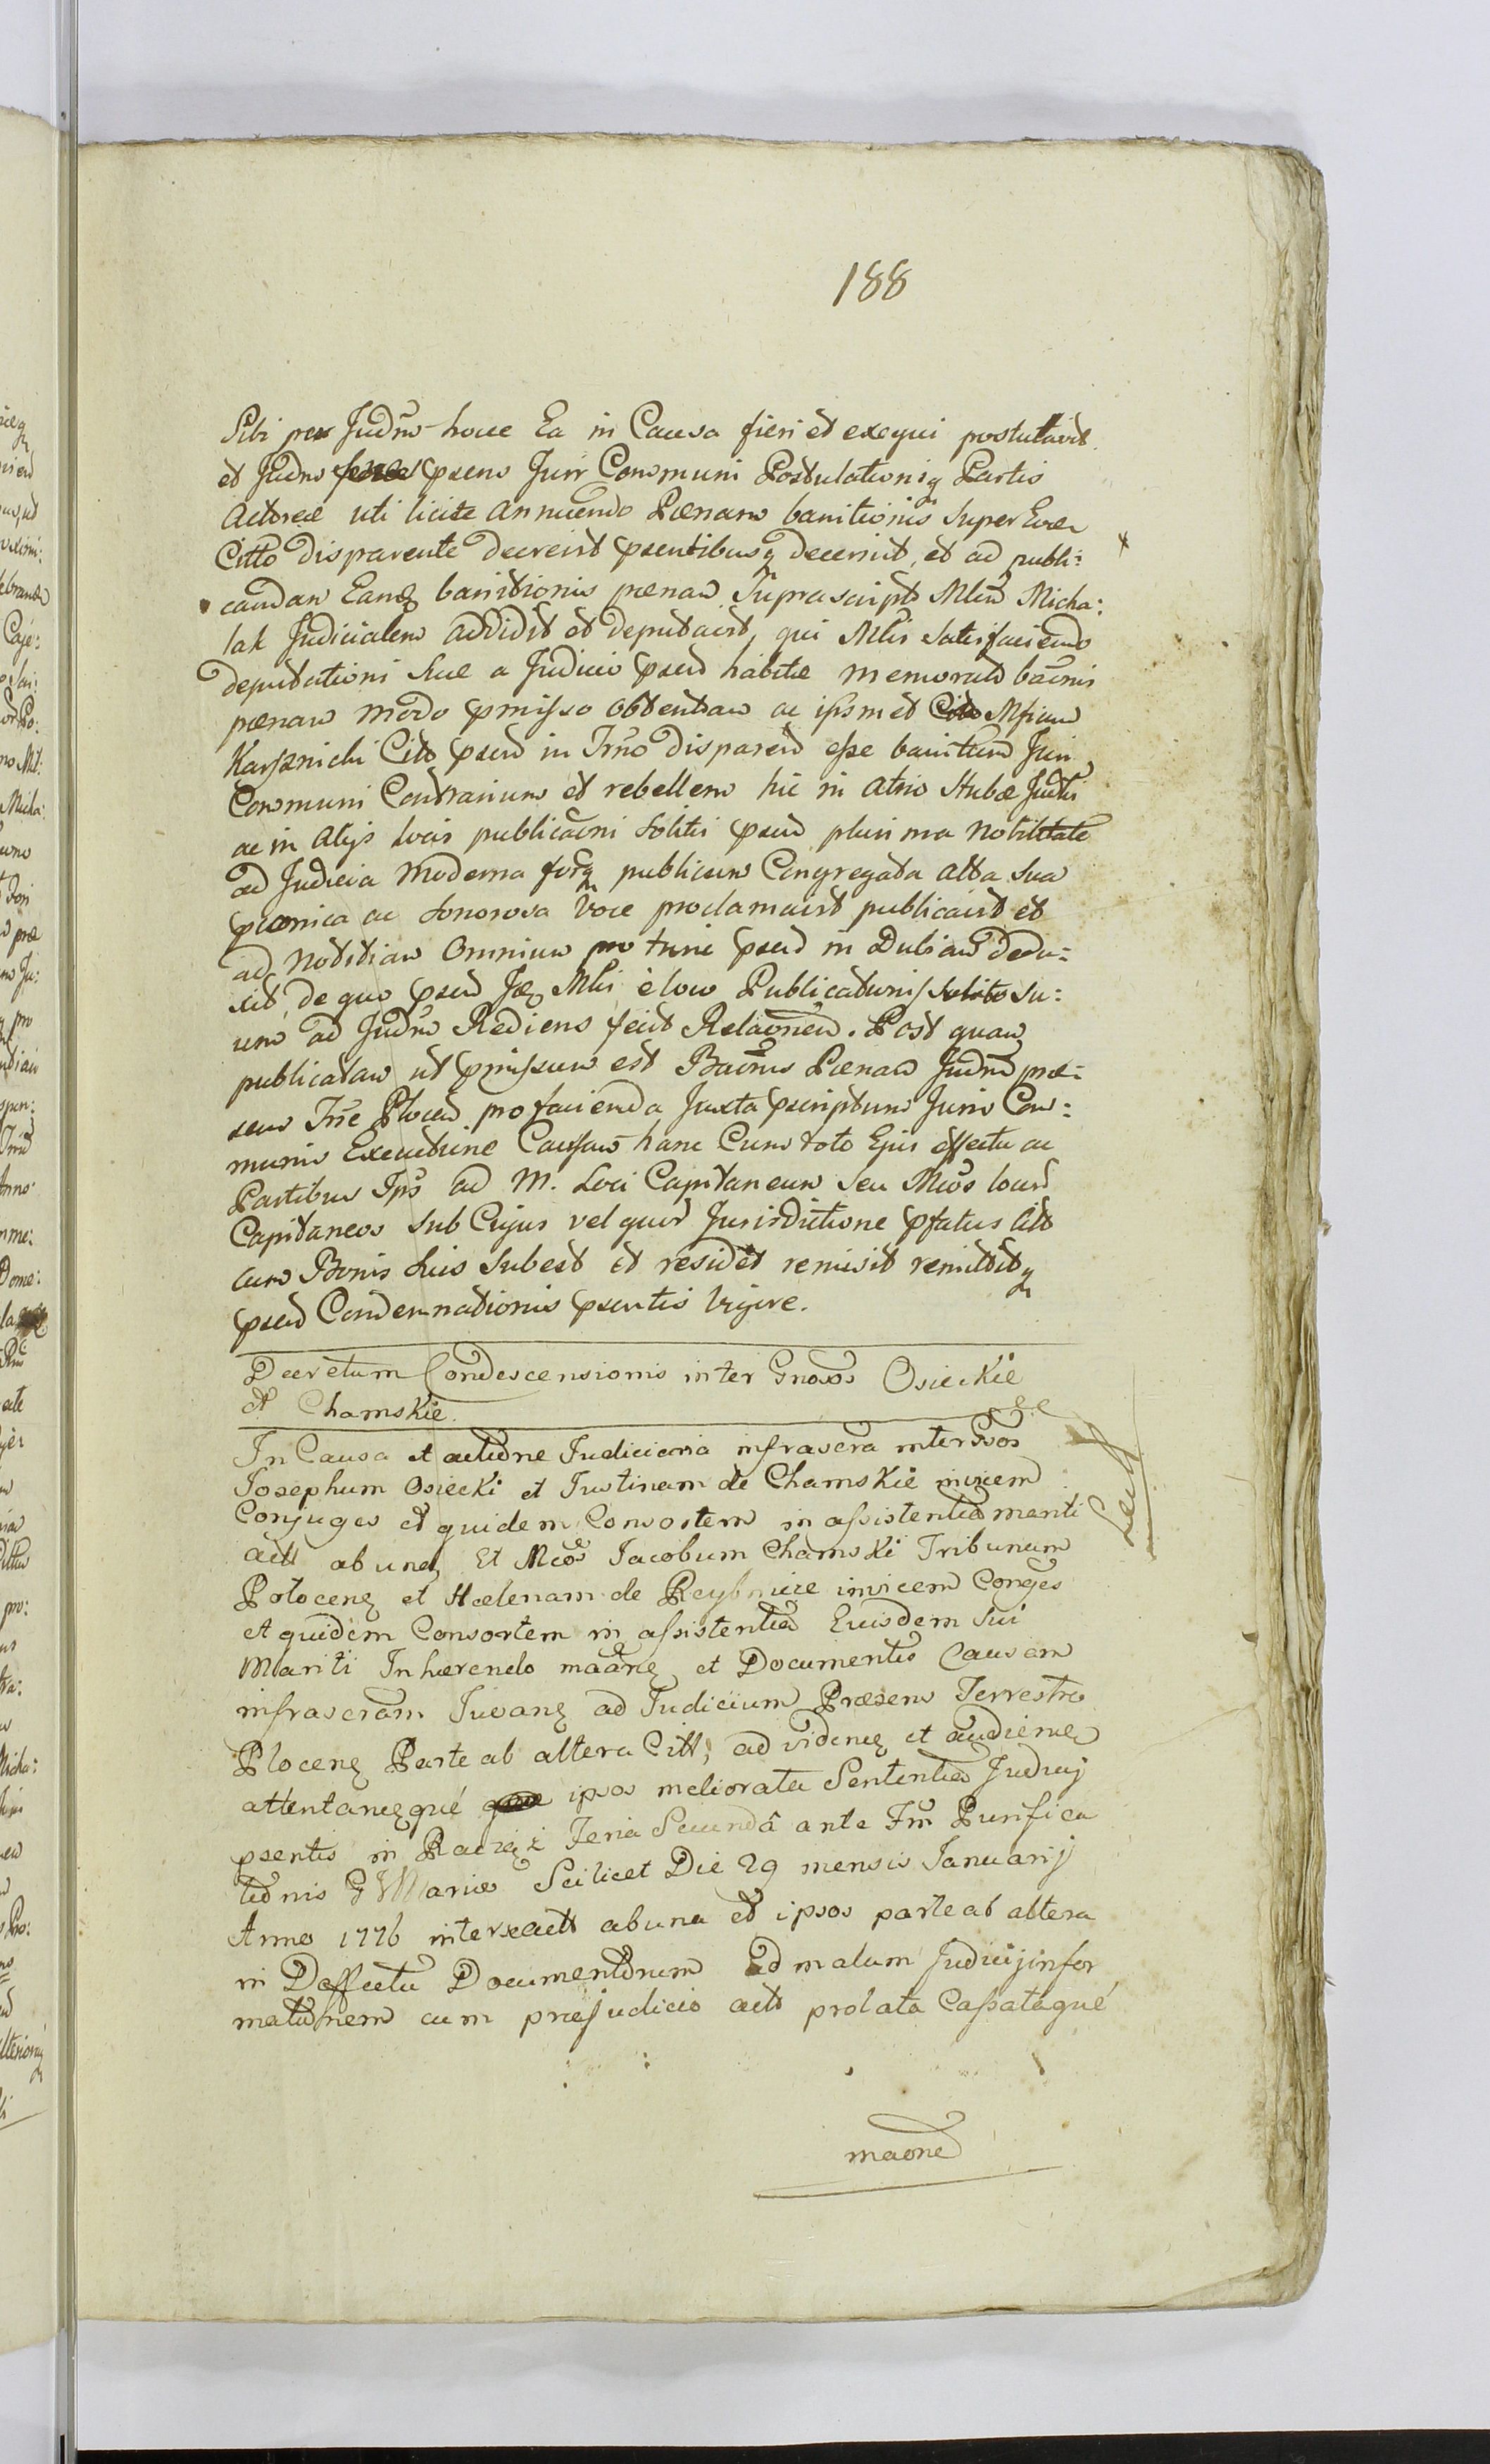 188
Sibi per Judm hocce Ea in Causa fieri et exequi postulavit.
et Judm psens Juri Communi Postulationiq Partis
Actoreæ uti licite annuendo Pœnam banitionis super Eod
Citto disparente decrevit psentibusq decernit, et ad publi:
candam Eandz banitionis pœnam Suprascript Mlem Micha:
lak Judicialem addidit et deputavit, qui Mlis satisfaciendo
deputationi suæ a Judicio psen habitæ memorat banis
pœnam modo pmisso obtentam ac ipsmet Mficum
Karsznicki Citt psen in Trno disparen esse banitum Juri
Communi Contrarium et rebellem hic in atrio Stubæ Judli
ac in alijs locis publicaoni solitis psen plurima Nobilitate
ad Judicia moderna forq publicum Congregata alta sua
ac sonorosa voce proclamavit publicavit et
ad notitiam omnium pro tunc psen in Dubiam dedu:
xit, de quo psen Jdz Mlis e loco Publicationis solito su:
um ad Judm Rediens fecit Relaonem. Post quam
publicatam ut pmissum est Banis Pœnam Judm præ:
sens Trre Plocen pro facienda Juxta pscriptum Juris Com:
munis Executione Caussam hanc Cum toto Ejus effectu ac
Partibus Ips ad M. Loci Capitaneum seu Mcos locor
Capitaneos sub Cujus vel quor Jurisdictione pfatus Citt
cum Bonis suis subest et residet remisit remittitq
psen Condemnationis psentis vigore.
Decretum Condescensionis inter Gnosos Osieckie
et Chamskie.
In Causa et actione Judiciaria infrascra inter Gsos
Josephum Osiecki et Justinam de Chamskie invicem
Conjuges et quidem Consortem in assistentia mariti
actt ab unaz Et Mcos Jacobum Chamski Tribunum
Plocenz et Hælenam de invicem Conges
et quidem Consortem in assistentia Eiusdem sui
Mariti Inhærendo et Documentis Causam
infrascram Juvanz ad Judicium Præsens Terrestre
Plocenz Parte ab altera Citt, ad videnz et audienz
attentanzqué ipsos meliorata Sententia Judicij
psentis in Raciąż Feria Secundâ ante Fm Purifica
tionis B V Mariæ Scilicet Die 29 mensis Januarij
Anno 1776 inter actt ab una et ipsos parte ab altera
in Deffectu Documentorum ad malam Judicij infor
mationem cum præjudicio actt prolata Cassataqué
maone